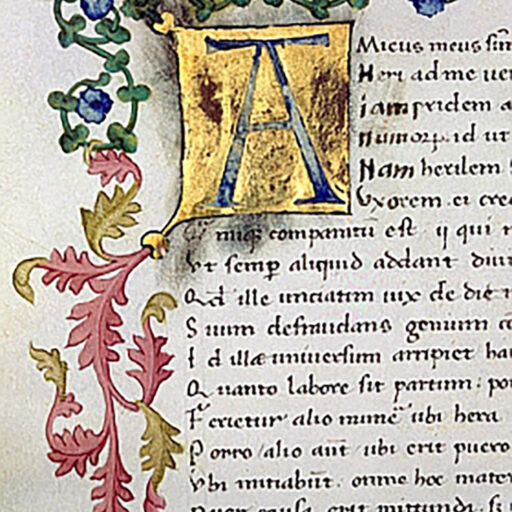 AMicus meus sũm
Heri ad me ueni
iam pridem a
numorꝝ. id ut
Nam herilem
Vxorem. ei
niq; comparatũ est ij qui
Vt semꝑ aliquid addant diui
Qđ ille unciatim uix de
Suum defraudans genium
Id illæ uniuersum arripiet
Quanto labore sit partum: por
Ferietur alio mune ubi hera
Porro alio aũt ubi erit puero
Vbi initiabũt. omne hoc mater
causa erit mittundi.